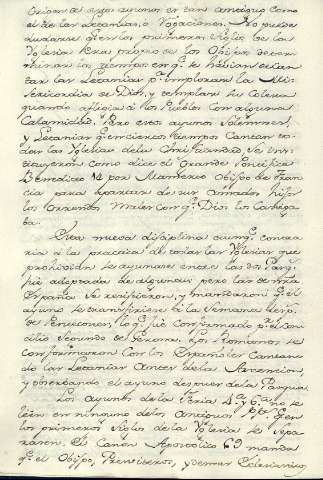 Origen de estos ayunos es tan antiguo como
el de las Letanias, o Rogaciones. No puede
dudarse qe. en los primeros siglos de la
Yglesia era propio de los Obispos determinar
los tiempos en qe. se habian de can
tar las Letanias pa. implorar la Mi
sericordia de Dios, y templar su Colera
quando afligia a los Pueblos con alguna
Calamidad. estos ayunos solemnes,
y Letanias qe. en ciertos tiempos cantan to
das las Yglesias de la Christiandad, se ins
tituyeron como dice el Grande Pontifice
Benedicto 14 por Mamerto Obispo de Fran
cia para apartar de sus amados hijos
los tremendos males con qe. Dios los castiga
ba.
Esta nueva disciplina aunqe. contra
ria a la practica de todas las Yglesias que
prohibian se ayunase entre las dos Pasqs.
fué adoptada de algunas pero las de
España se resistieron, y mandaron qe. el
ayuno se transfiriese a la semana desp.
de Pentecostes, lo qe. fué confirmado pr. el Con
cilio Segundo de Gerona. Los Romanos se
conformaron con los Españoles cantan
do las Letanias antes de la Ascencion,
y observando el ayuno despues de la Pasqua.
Los ayunos de la Feria 4a. y 6a. no se
leen en ninguno de los antiguos pps. qe. en
los primeros siglos de la Yglesia se
. El Canon Apostolico 69 manda
qe. el Obispo, Presviteros, y demas Eclesiasticos,